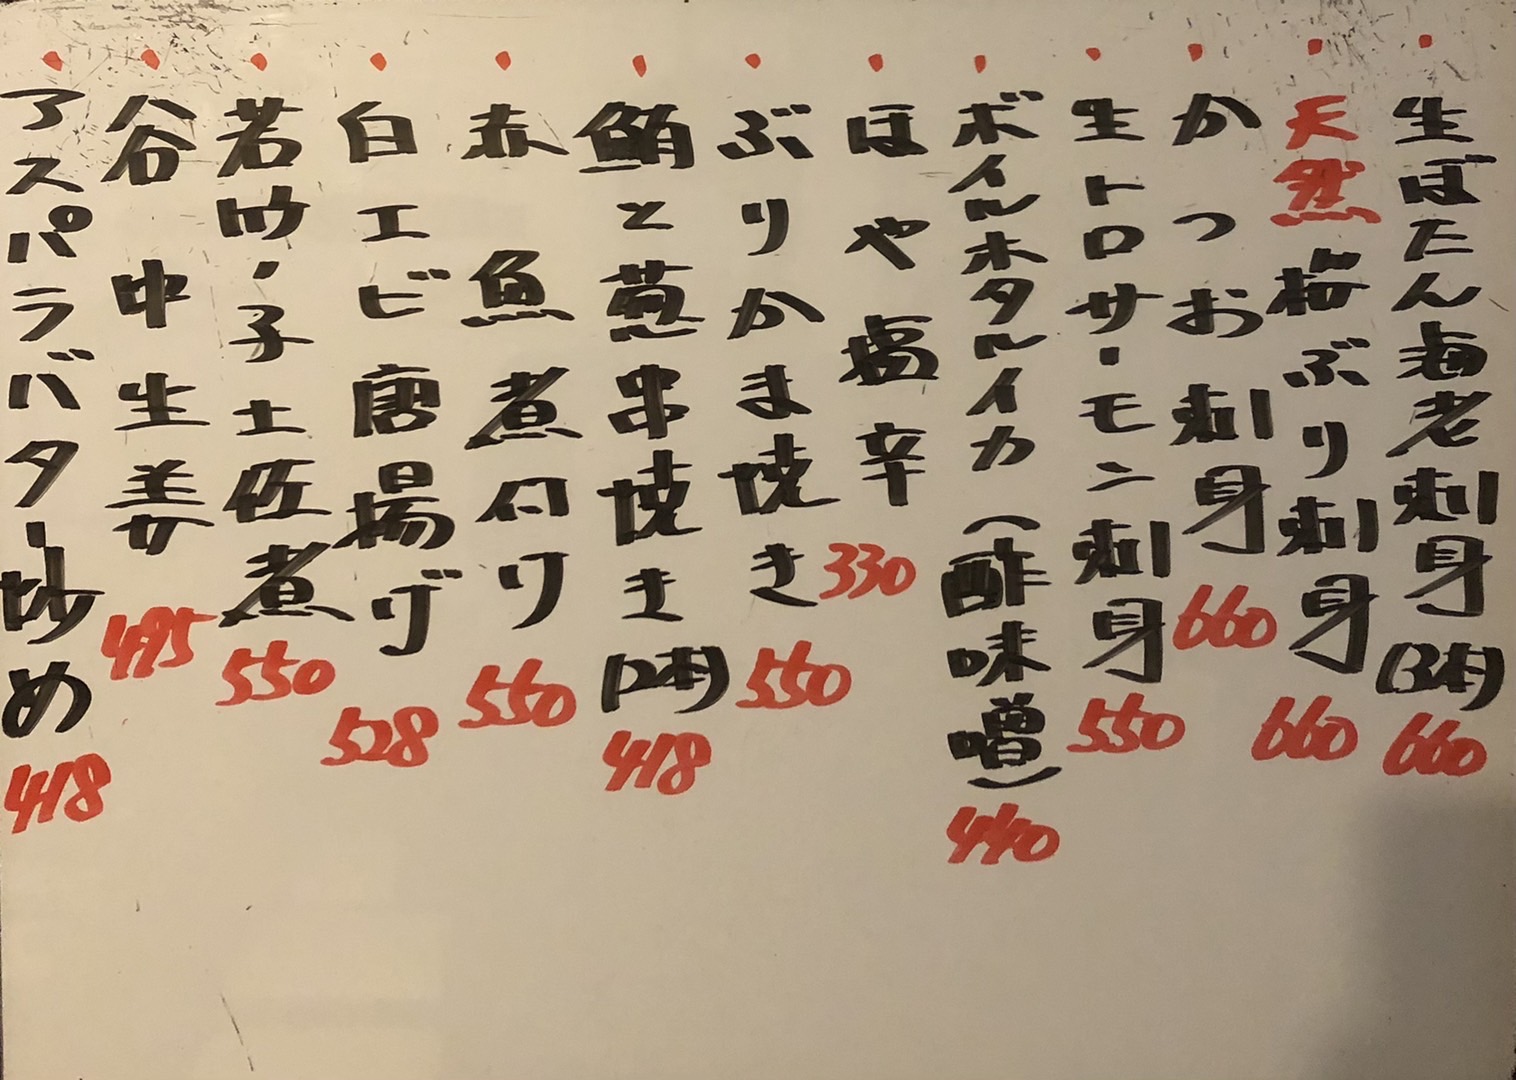 生ぼたん海老刺身(3本) 660
天然梅ぶり刺身 660
かつお刺身 660
生トロサーモン刺身 550
ボイルホタルイカ(酢味噌) 440
ほや塩辛 330
ぶりかま焼き 550
鮪と葱串焼き(2本) 418
赤魚煮付け 550
白エビ唐揚げ 528
若竹・子土佐煮 550
谷中生姜 495
アスパラバター炒め 418